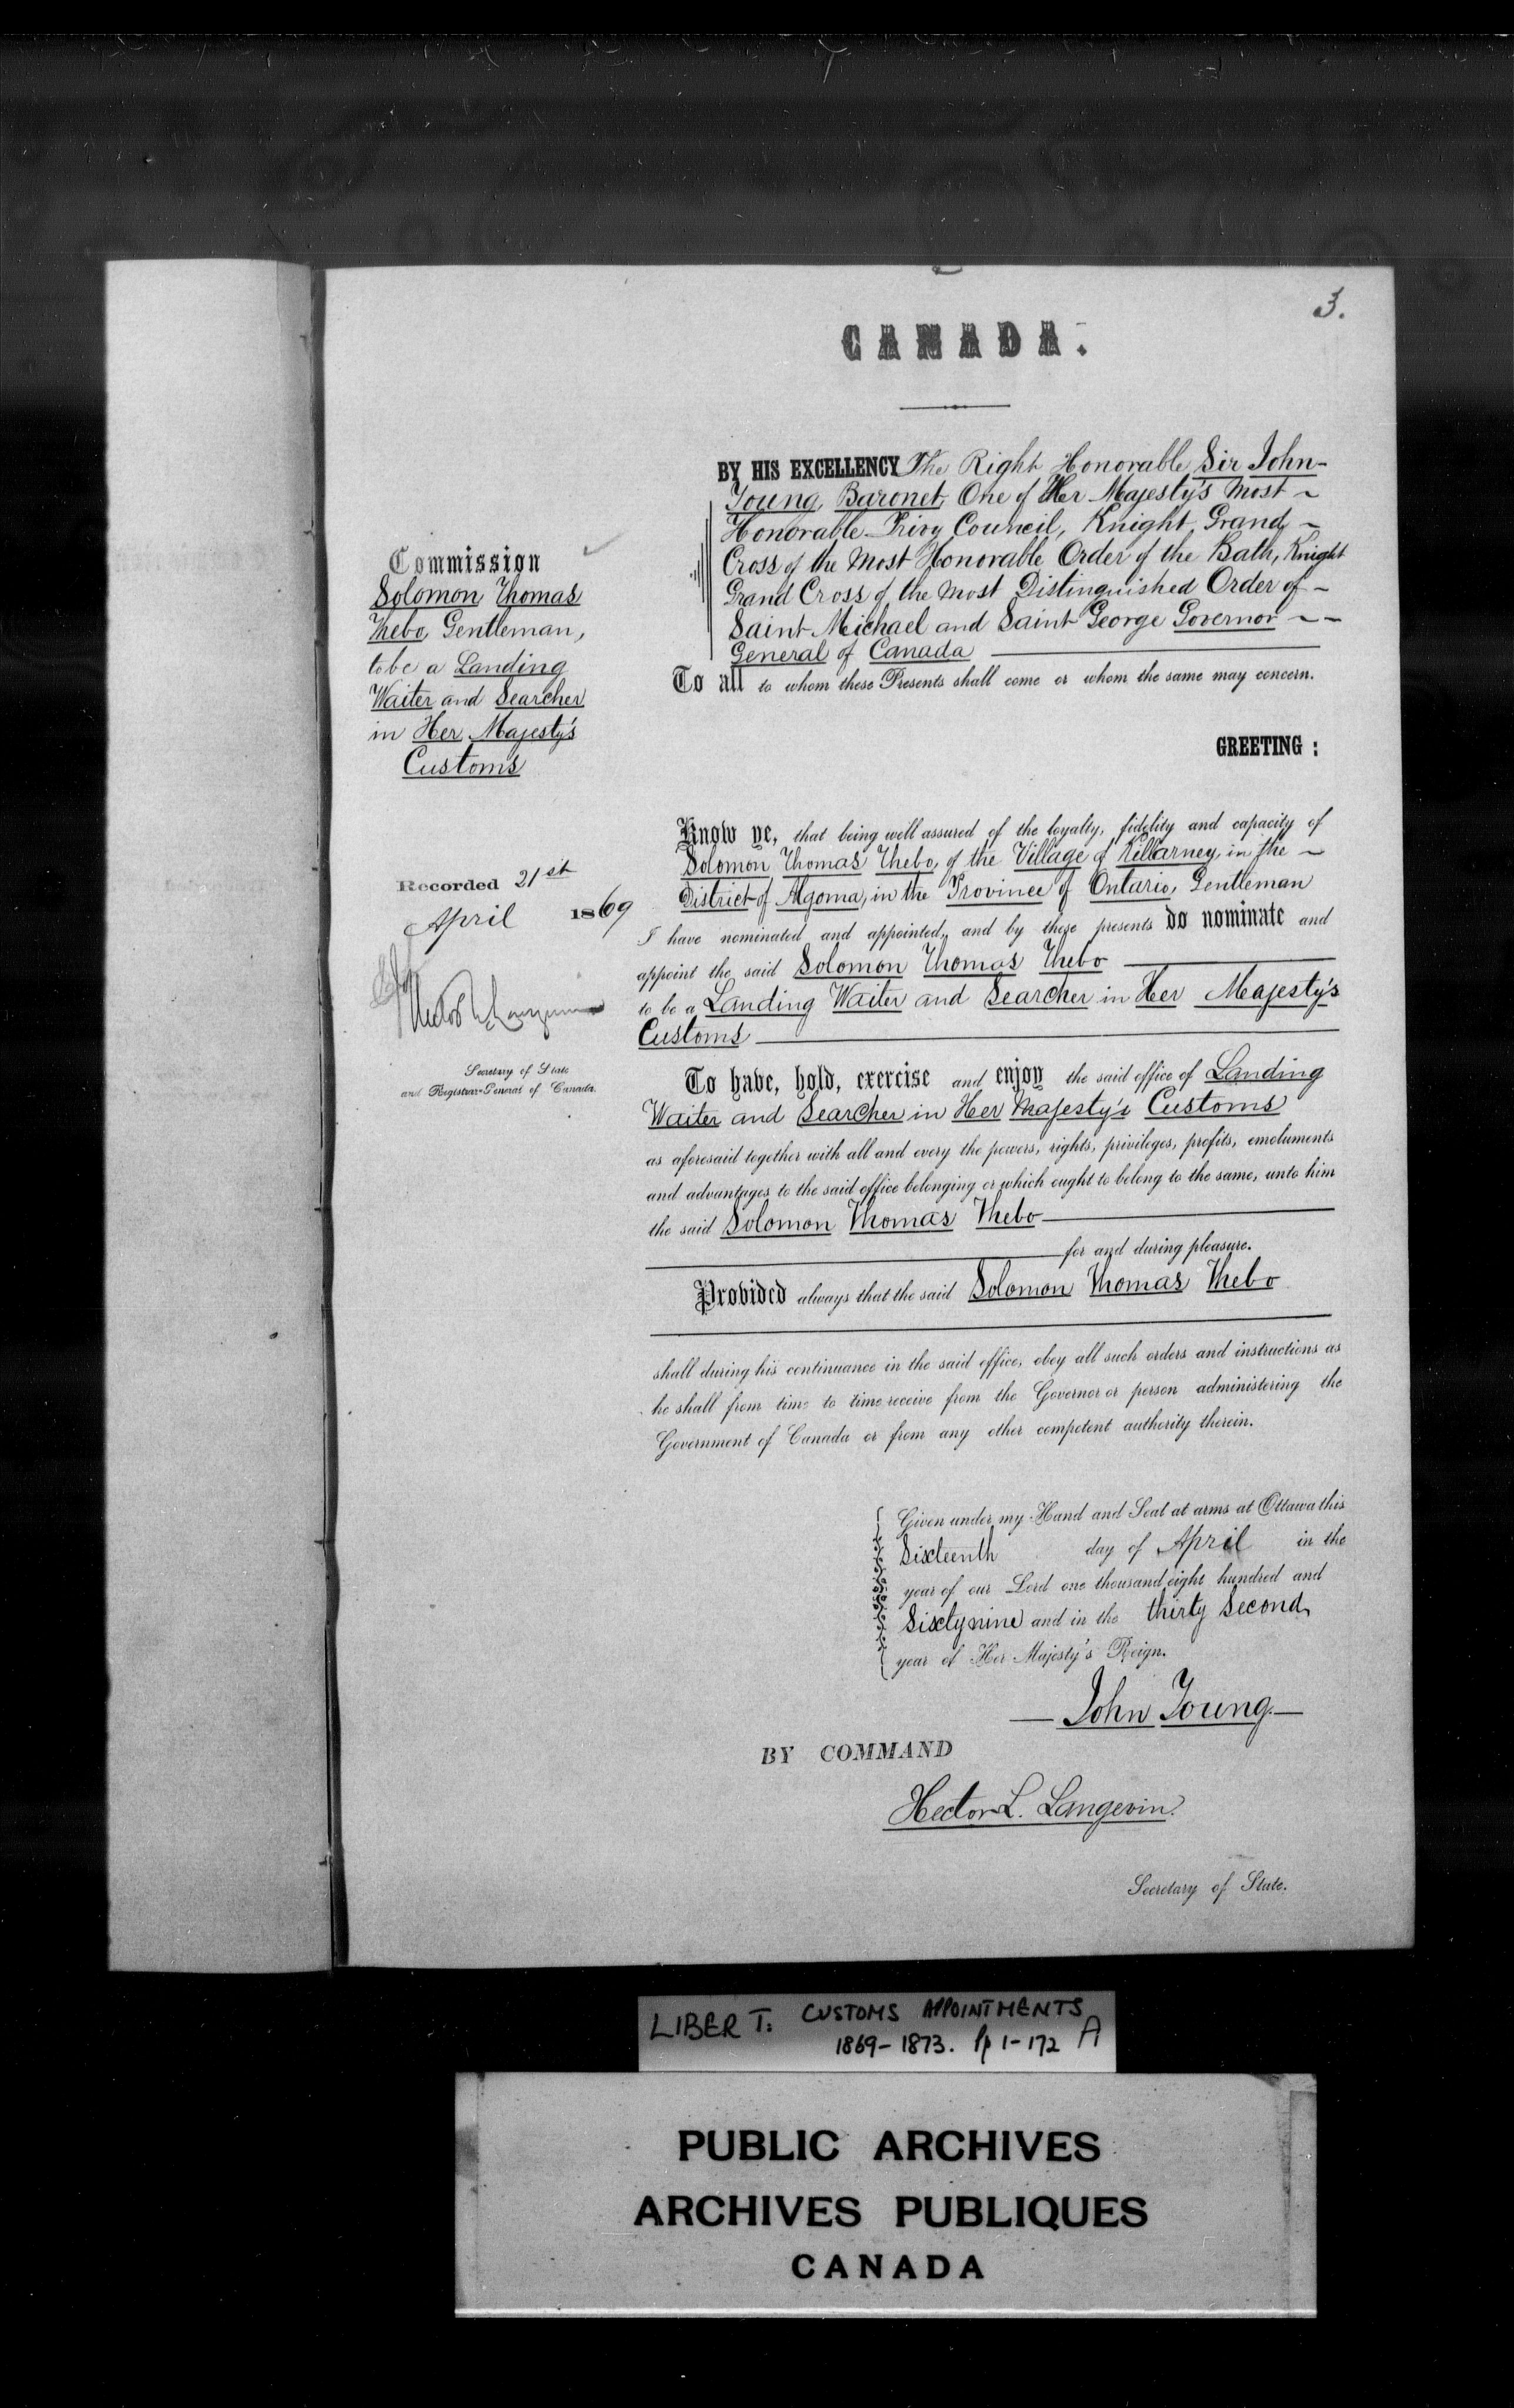 3.
CANADA.
BY HIS EXCELLENCY The Right Honorable Sir John
Young, Baronet, One of Her Majesty's Most
Honorable Privy Council, Knight Grand
Cross of the Most Honorable Order of the Bath, Knight
Grand Cross of the Most Distinguished Order of
Saint Michael and Saint George Governor
General of Canada
To all to whom these Presents shall come or whom the same may concern.
GREETING :
Commission
Solomon Thomas
Thebo, Gentleman,
to be a Landing
Waiter and Searcher
in Her Majesty's
Customs
Recorded 21st
April 1869
Hector L. Langevin
Secretary of State
and Registrar-General of Canada.
Know ye, that being well assured of the loyalty, fidelity and capacity of
Solomon Thomas Thebo, of the Village of Killarney, in the
District of Algoma, in the Province of Ontario, Gentleman
I have nominated and appointed, and by these presents do nominate and
appoint the said Solomon Thomas Thebo
to be a Landing Waiter and Searcher in Her Majesty's
Customs
To have, hold, exercise and enjoy the said office of Landing
Waiter and Searcher in Her Majesty's Customs
as aforesaid together with all and every the powers, rights, privileges, profits, emoluments
and advantages to the said office belonging or which ought to belong to the same, unto him
the said Solomon Thomas Thebo
for and during pleasure.
Provided always that the said Solomon Thomas Thebo
shall during his continuance in the said office, obey all such orders and instructions as
he shall from time to time receive from the Governor or person administering the
Government of Canada or from any other competent authority therein.
Given under my Hand and Seal at arms at Ottawa this
Sixteenth day of April in the
year of our Lord one thousand eight hundred and
Sixty nine and in the thirty Second
year of Her Majesty's Reign.
John Young
BY COMMAND
Hector L. Langevin.
Secretary of State.
LIBER T: CUSTOMS APPOINTMENTS
1869-1873. Pp 1-172 A
PUBLIC ARCHIVES
ARCHIVES PUBLIQUES
CANADA